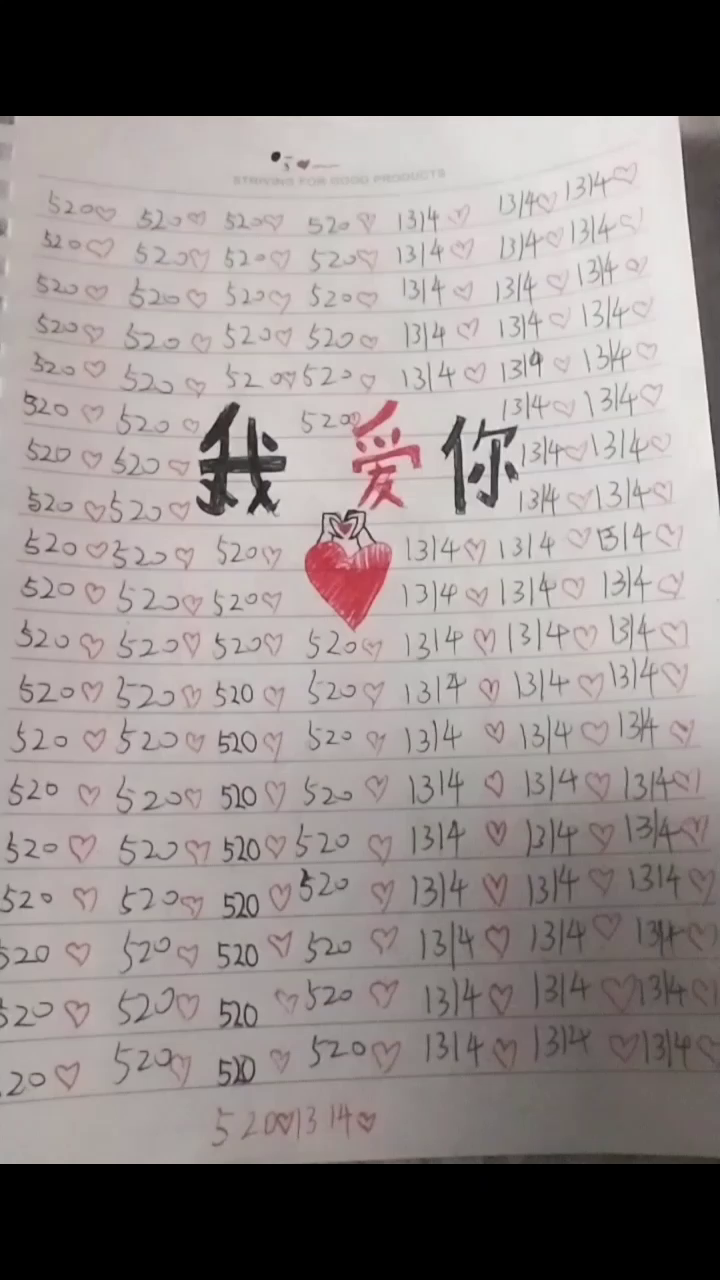 STRIVING FOR GOOD PRODUCTS
520♡ 520♡ 520♡ 520♡ 1314♡ 1314♡ 1314♡
520♡ 520♡ 520♡ 520♡ 1314♡ 1314♡ 1314♡
520♡ 520♡ 520♡ 520♡ 1314♡ 1314♡ 1314♡
520♡ 520♡ 520♡ 520♡ 1314♡ 1314♡ 1314♡
520♡ 520♡ 520♡ 520♡ 1314♡ 1314♡ 1314♡
520♡ 520♡ 520♡ 1314♡ 1314♡
520♡ 520♡ 我爱你 1314♡ 1314♡
520♡ 520♡ 1314♡ 1314♡
520♡ 520♡ 520♡ 1314♡ 1314♡ 1314♡
520♡ 520♡ 520♡ 1314♡ 1314♡ 1314♡
520♡ 520♡ 520♡ 520♡ 1314♡ 1314♡ 1314♡
520♡ 520♡ 520♡ 520♡ 1314♡ 1314♡ 1314♡
520♡ 520♡ 520♡ 520♡ 1314♡ 1314♡ 1314♡
520♡ 520♡ 520♡ 520♡ 1314♡ 1314♡ 1314♡
520♡ 520♡ 520♡ 520♡ 1314♡ 1314♡ 1314♡
520♡ 520♡ 520♡ 520♡ 1314♡ 1314♡ 1314♡
520♡ 520♡ 520♡ 520♡ 1314♡ 1314♡ 1314♡
520♡ 520♡ 520♡ 520♡ 1314♡ 1314♡ 1314♡
20♡ 520♡ 520♡ 520♡ 1314♡ 1314♡ 1314♡
520♡1314♡